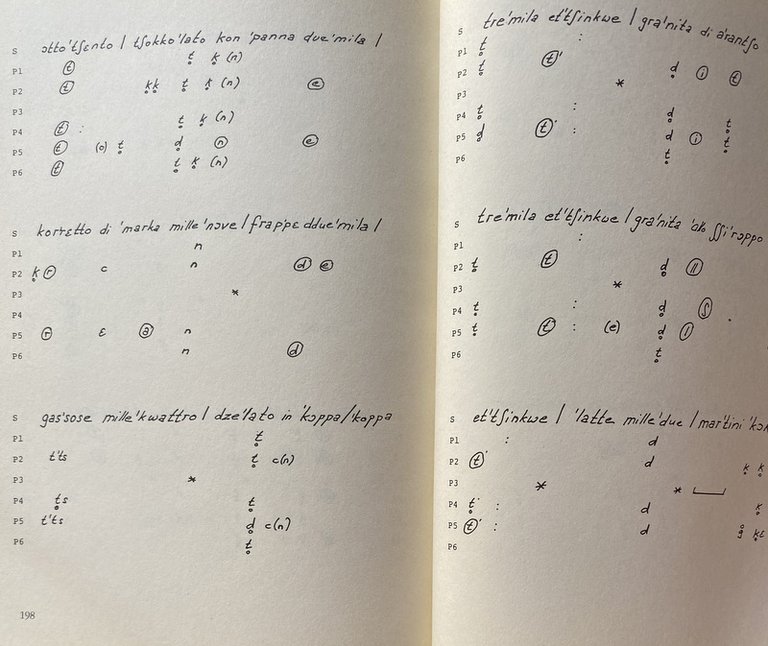 S ɔtto'tʃɛnto / tʃokko'lato kon 'panna due'mila /
P1 t̥ t̥ k̥ (n)
P2 t̥ k̥k̥ t̥ k̥ (n) e
P3
P4 t̥ : t̥ k̥ (n)
P5 t̥ (o) t̥ d̥ n e
P6 t̥ t̥ k̥ (n)
S korrɛtto di 'marka mille'nɔve / frap'pɛ ddue'mila /
P1 n
P2 k̥ r c n d e
P3 *
P4
P5 r ɛ a n
P6 n d
S gas'sose mille'kwattro / dze'lato in 'kɔppa / 'koppa
P1 t̥
P2 t'ts t̥ c(n)
P3 *
P4 t̥s t̥
P5 t'ts d̥ c(n)
P6 t̥
198
S tre'mila et'tʃinkwe / gra'nita di a'rantʃo
P1 t̥ :
P2 t̥ t' d̥ i t
P3 *
P4 t̥ : d̥
P5 d̥ t' : d̥ i t̥
P6 t̥
S tre'mila et'tʃinkwe / gra'nita
P1 :
P2 t̥ t d̥ ll
P3 *
P4 t̥ : d̥ ʃ
P5 t̥ t' : (e) d̥ l
P6 t̥
S et'tʃinkwe / 'latte mille'due / mar'tini 'kɔn
P1 : d
P2 t' d k̥ k̥
P3 * *
P4 t̥' : d k̥
P5 t' : d g̊ k̥ɛ
P6